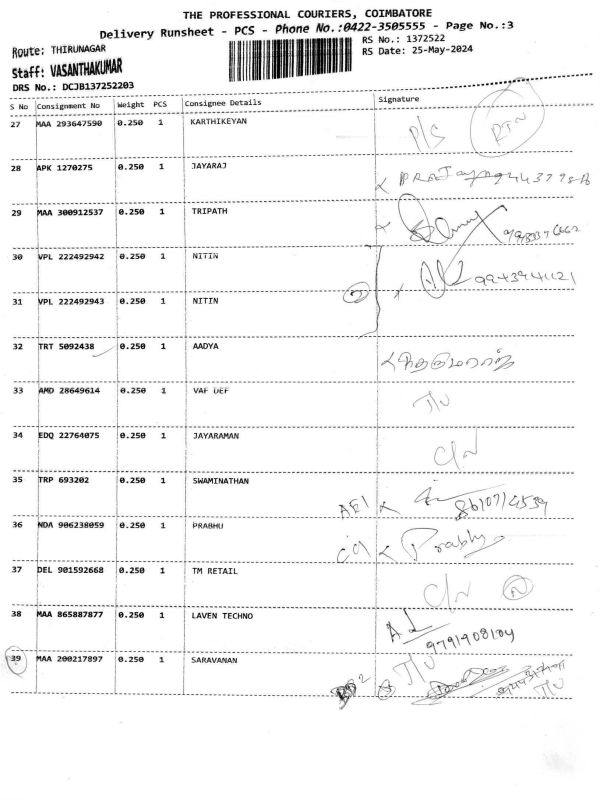 THE PROFESSIONAL COURIERS, COIMBATORE
Delivery Runsheet - PCS - Phone No.:0422-3505555 - Page No.:3
Route: THIRUNAGAR
RS No.: 1372522
Staff: VASANTHAKUMAR
RS Date: 25-May-2024
DRS No.: DCJB137252203
S No Consignment No Weight PCS Consignee Details Signature
27 MAA 293647590 0.250 1 KARTHIKEYAN P/S RTN
28 APK 1270275 0.250 1 JAYARAJ
29 MAA 300912537 0.250 1 TRIPATH
30 VPL 222492942 0.250 1 NITIN
31 VPL 222492943 0.250 1 NITIN 9943941121
32 TRT 5092438 0.250 1 AADYA
33 AMD 28649614 0.250 1 VAF DEF
34 EDQ 22764075 0.250 1 JAYARAMAN C/N
35 TRP 693202 0.250 1 SWAMINATHAN 8610714539
36 NDA 906238059 0.250 1 PRABHU Prabhu
37 DEL 901592668 0.250 1 TM RETAIL C/N
38 MAA 865887877 0.250 1 LAVEN TECHNO 9791908104
39 MAA 200217897 0.250 1 SARAVANAN